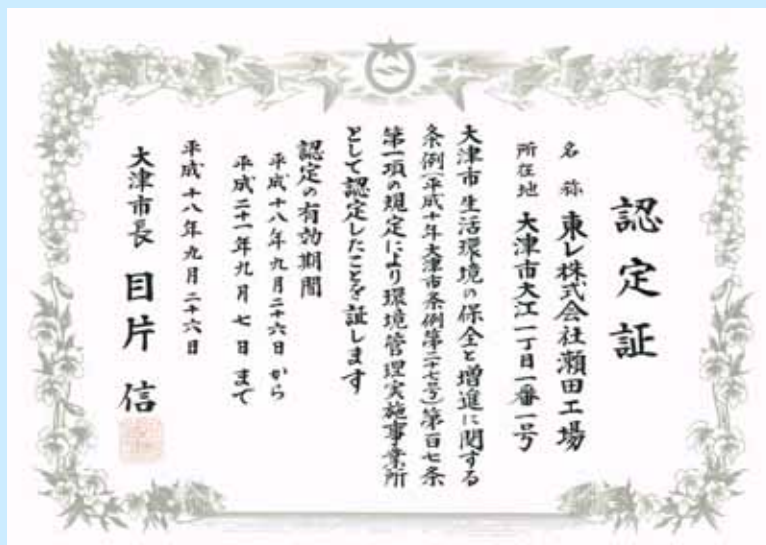 認定証
名称 東レ株式会社瀬田工場
所在地 大津市大江一丁目一番一号
大津市生活環境の保全と増進に関する
条例（平成十年大津市条例第二十七号）第百七条
第一項の規定により環境管理実施事業所
として認定したことを証します
認定の有効期間
平成十八年九月二十六日から
平成二十一年九月七日まで
平成十八年九月二十六日
大津市長 目片信